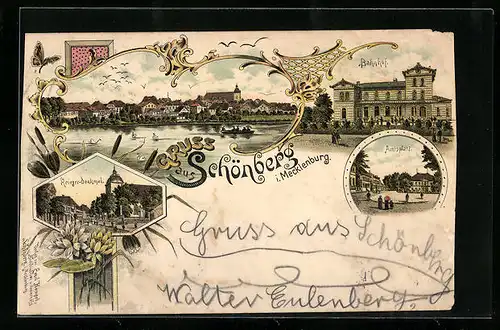 Bahnhof.
GRUSS
aus
Schönberg
i. Mecklenburg.
Krieger-Denkmal.
Amtsplatz.
Gruss aus Schönberg
Walter Eulenberg.